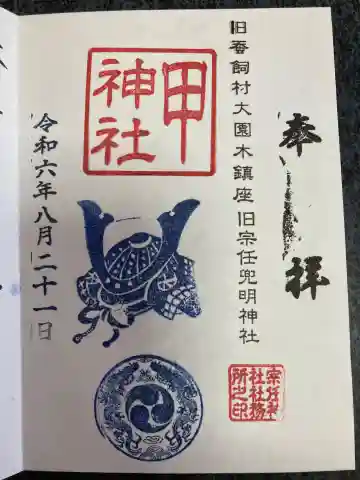 奉祥
旧蚕飼村大園木鎮座 旧宗任兜明神社
甲神社
令和六年八月二十一日
宗任神社社務所之印